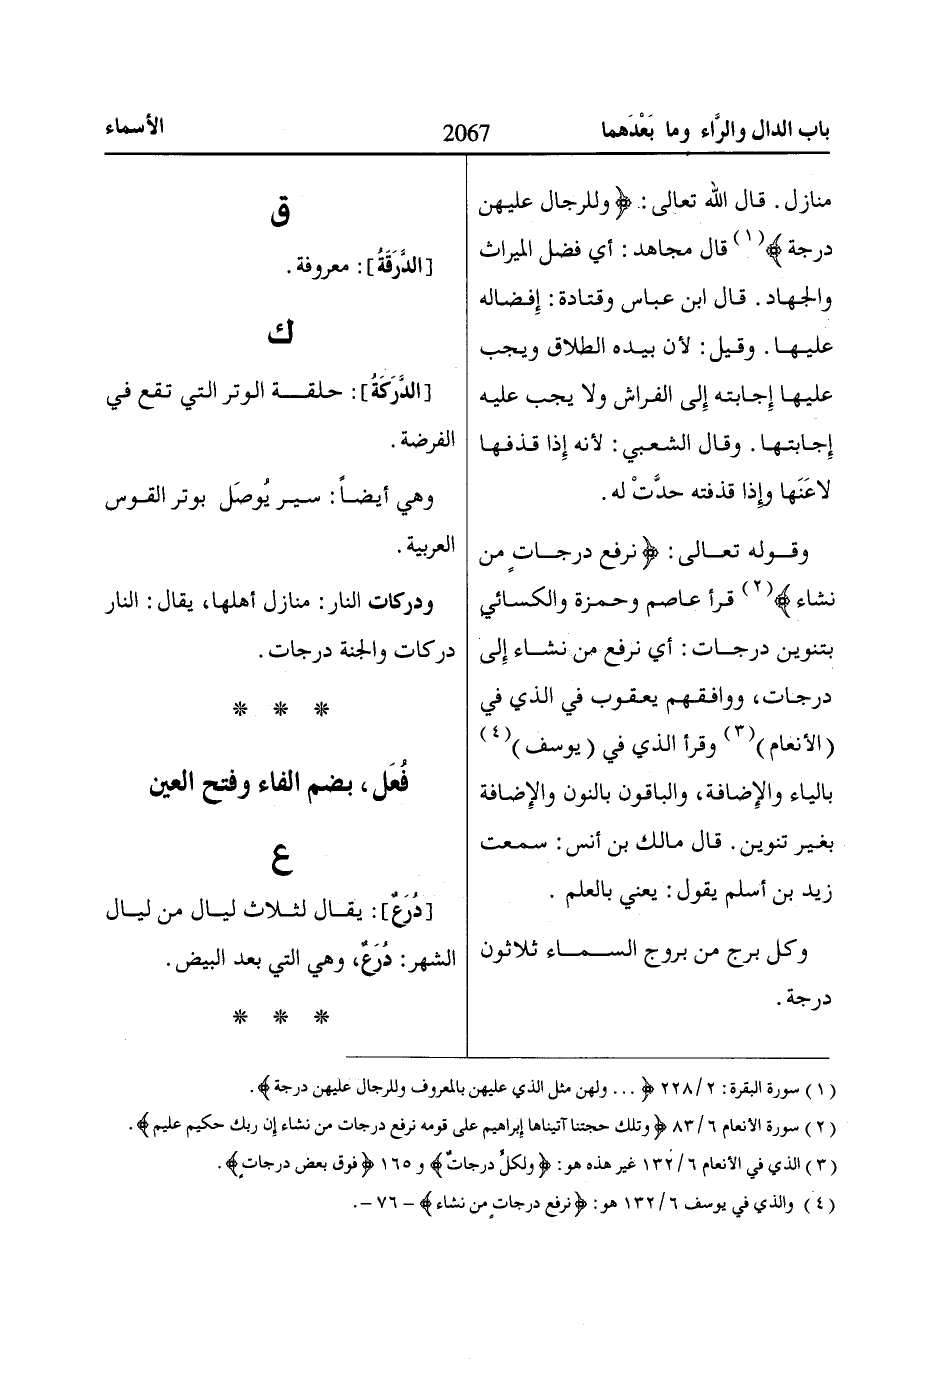 باب الدال والرَّاء وما بَعْدَهما
2067
الأسماء
منازل. قال الله تعالى: ﴿وللرجال عليهن
درجة﴾(١) قال مجاهد: أي فضل الميراث
والجهاد. قال ابن عباس وقتادة: إفضاله
عليها. وقيل: لأن بيده الطلاق ويجب
عليها إجابته إلى الفراش ولا يجب عليه
إجابتها. وقال الشعبي: لأنه إذا قذفها
لاعَنَها وإذا قذفته حدَّتْ له.
وقوله تعالى: ﴿نرفع درجاتٍ من
نشاء﴾(٢) قرأ عاصم وحمزة والكسائي
بتنوين درجات: أي نرفع من نشاء إلى
درجات، ووافقهم يعقوب في الذي في
(الأنعام)(٣) وقرأ الذي في (يوسف)(٤)
بالياء والإضافة، والباقون بالنون والإضافة
بغير تنوين. قال مالك بن أنس: سمعت
زيد بن أسلم يقول: يعني بالعلم .
وكل برج من بروج السماء ثلاثون
درجة.
ق
[الدَّرَقَةُ]: معروفة.
ك
[الدَّرَكَةُ]: حلقة الوتر التي تقع في
الفرضة.
وهي أيضاً: سير يُوصَل بوتر القوس
العربية.
ودركات النار: منازل أهلها، يقال: النار
دركات والجنة درجات.
* * *
فُعَل، بضم الفاء وفتح العين
ع
[دُرَعٌ]: يقال لثلاث ليال من ليال
الشهر: دُرَعٌ، وهي التي بعد البيض.
* * *
(١) سورة البقرة: ٢/ ٢٢٨ ﴿... ولهن مثل الذي عليهن بالمعروف وللرجال عليهن درجة﴾.
(٢) سورة الأنعام ٦/ ٨٣ ﴿وتلك حجتنا آتيناها إبراهيم على قومه نرفع درجات من نشاء إن ربك حكيم عليم﴾.
(٣) الذي في الأنعام ٦/ ١٣٢ غير هذه هو: ﴿ولكلٍّ درجاتٌ﴾ و ١٦٥ ﴿فوق بعض درجات﴾.
(٤) والذي في يوسف ٦/ ١٣٢ هو: ﴿نرفع درجاتٍ من نشاء﴾ – ٧٦ –.